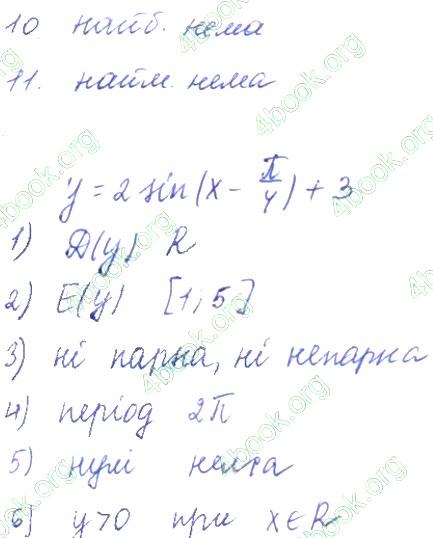 10 найб. нема
11. найм. нема
y = 2 sin(x - π/4) + 3
1) D(y) R
2) E(y) [1; 5]
3) ні парна, ні непарна
4) період 2π
5) нулі нема
6) y>0 при x∈R
4book.org